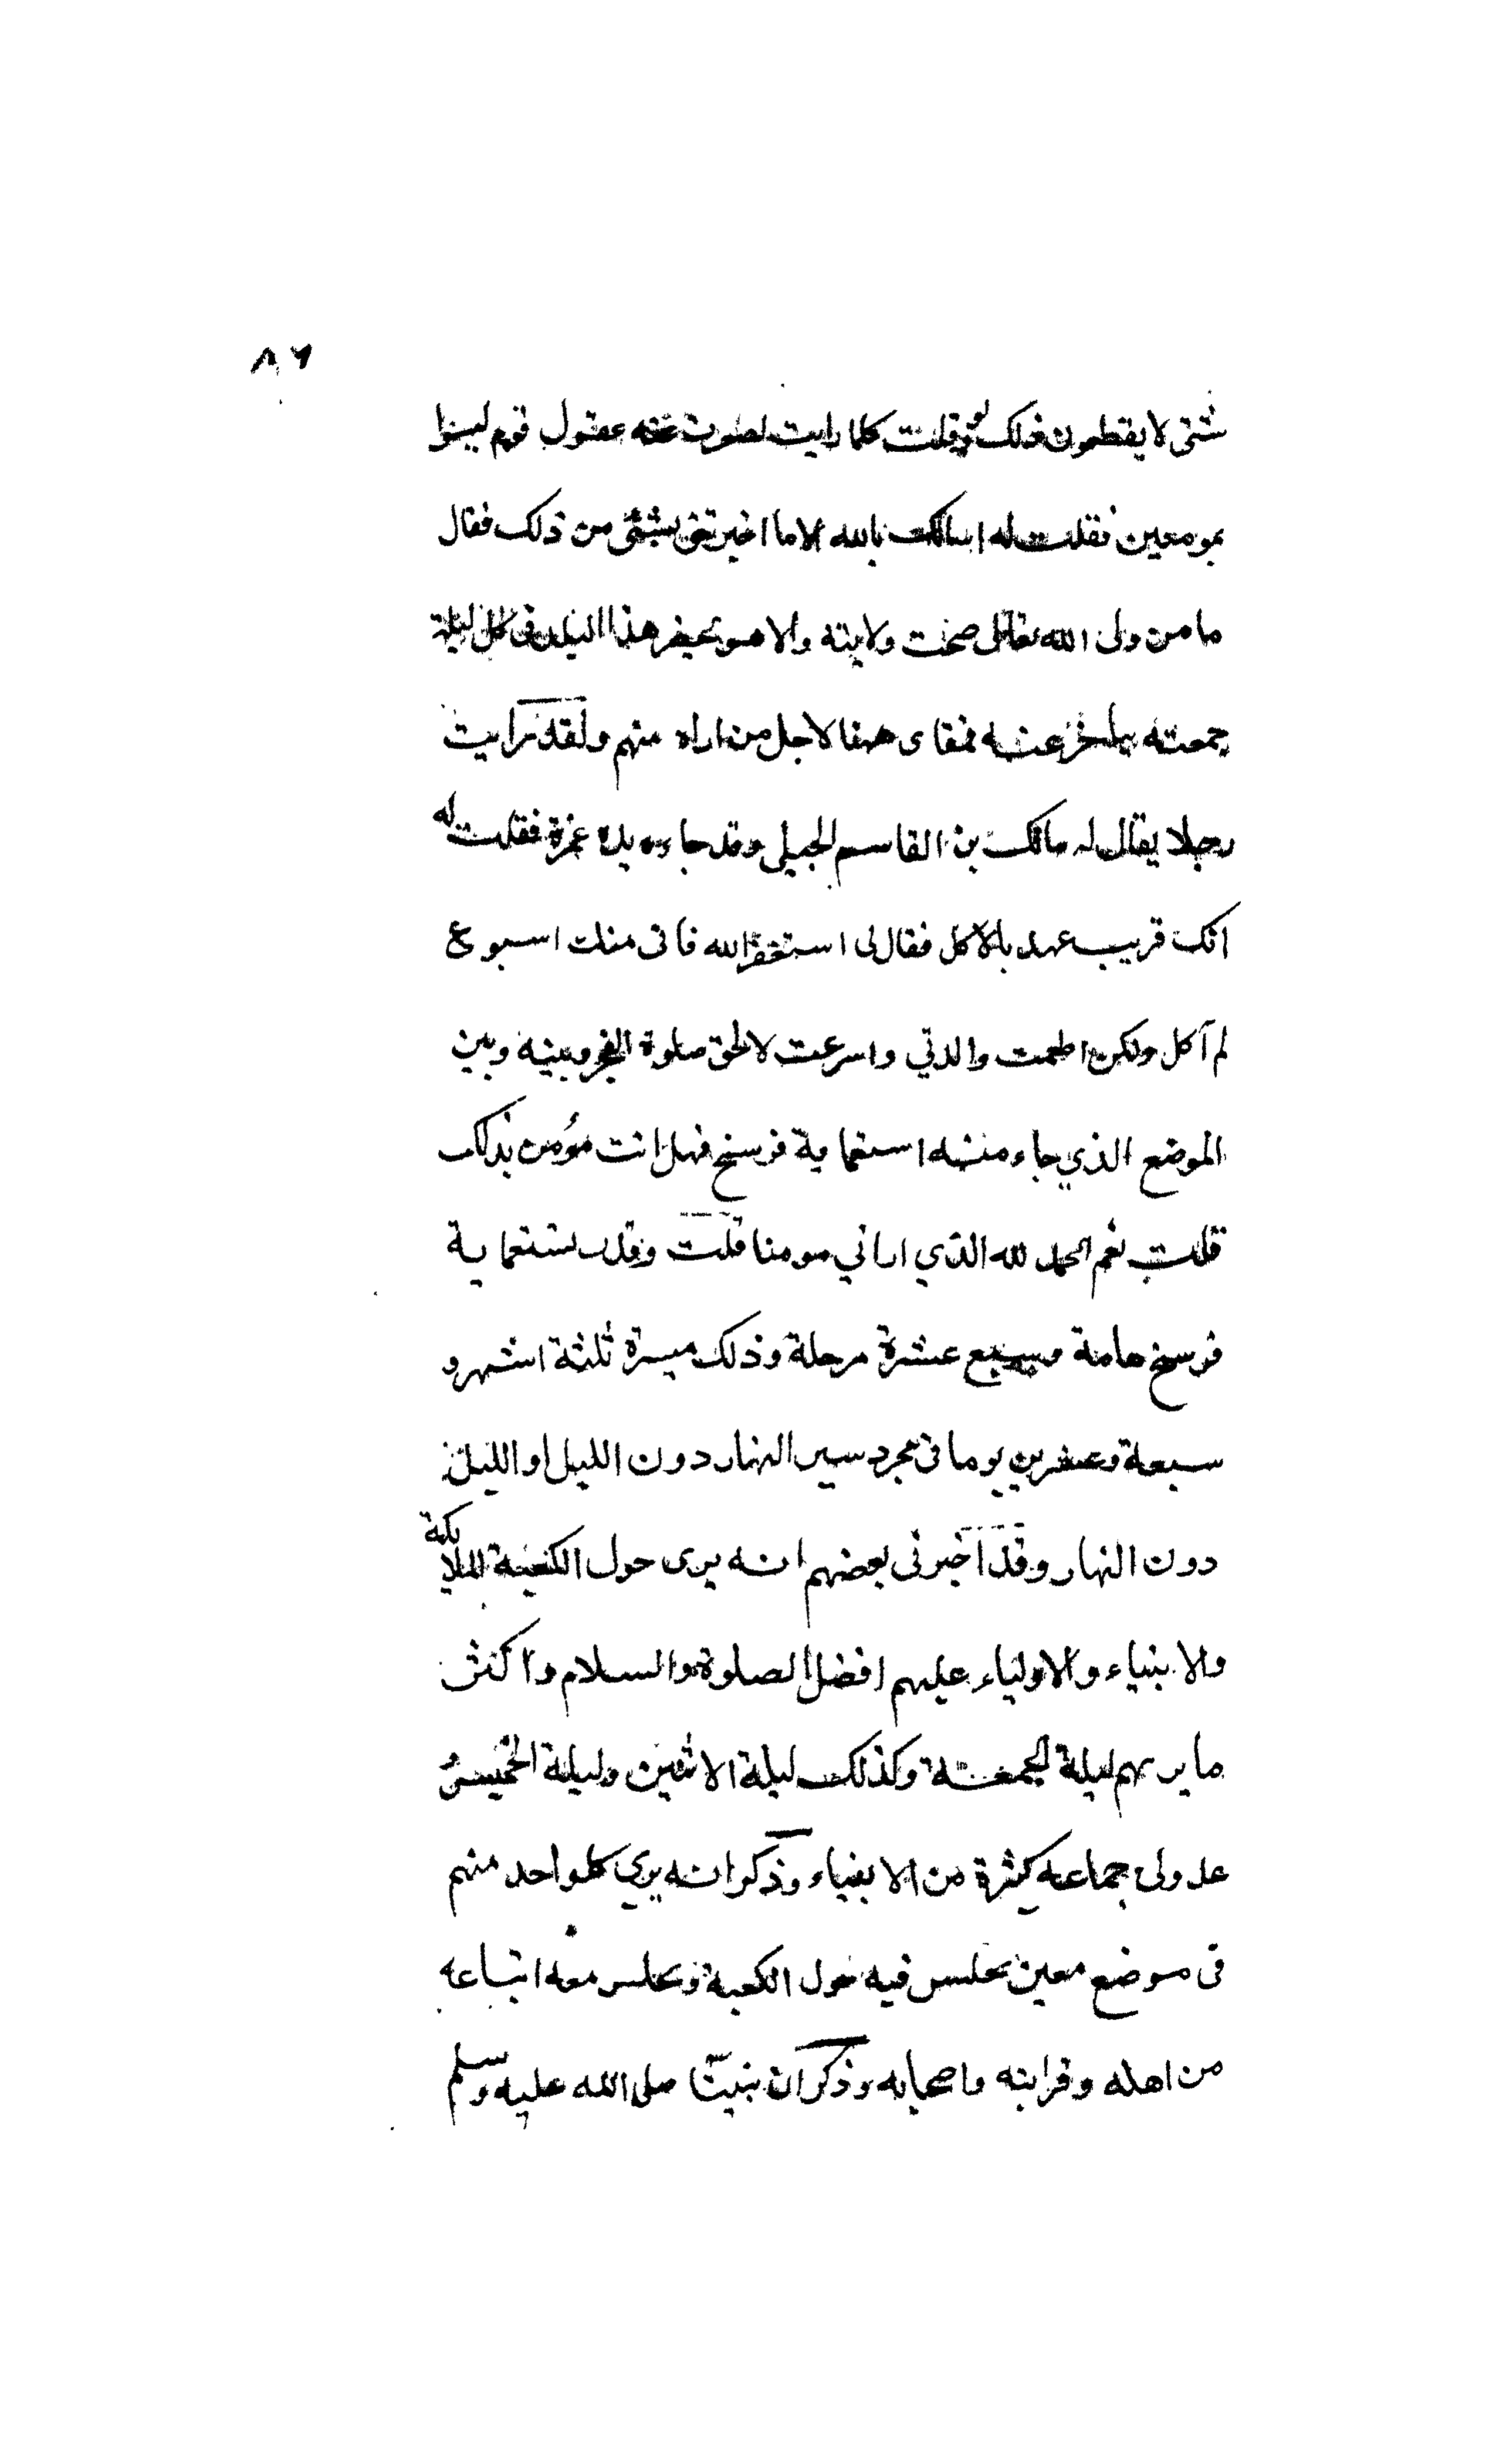 ٨٦
شتى لا يقطعون فذلك لو قلت كلما رايت لصغرت عنه عقول قوم ليسوا
بمومنين فقلت له اسالك بالله الا ما اخبرتنى بشئ من ذلك فقال
ما من ولى الله تعالى صحت ولايته والا هو يحضر هذا البلد فى كل ليلة
جمعة فمقاى ههنا لاجل من اراه منهم ولقد رايت
رجلا يقال له مالك بن القاسم الجبيلى وقد جاء ويده غمزة فقلت له
انك قريب عهد بالاكل فقال لى استغفر الله فانى منذ اسبوع
لم آكل ولكن اطعمت والدتي واسرعت لالحق صلوة الفجر وبينه وبين
الموضع الذي جاء منه سبعماية فرسخ فهل انت مؤمن بذلك
قلت نعم الحمد لله الذي اراني مومنا قلت وقدر تسعماية
فرسخ مرحلة وذلك ميسرة ثلثة اشهر و
سبعة وعشرين يوما فى مجرد سير النهار دون الليل او الليل
دون النهار وقد اخبرنى بعضهم انه يرى حول الكعبة الملايكة
والانبياء والاولياء عليهم افضل الصلوة والسلام واكثر
ما يريهم ليلة الجمعة وكذلك ليلة الاثنين وليلة الخميس
عد ولى جماعه كثيرة من الانبياء وذكر انه يري كلواحد منهم
فى موضع معين يجلس فيه حول الكعبة ويجلس معه اتباعه
من اهله وقرابته واصحابه وذكر ان نبينا صلى الله عليه وسلم